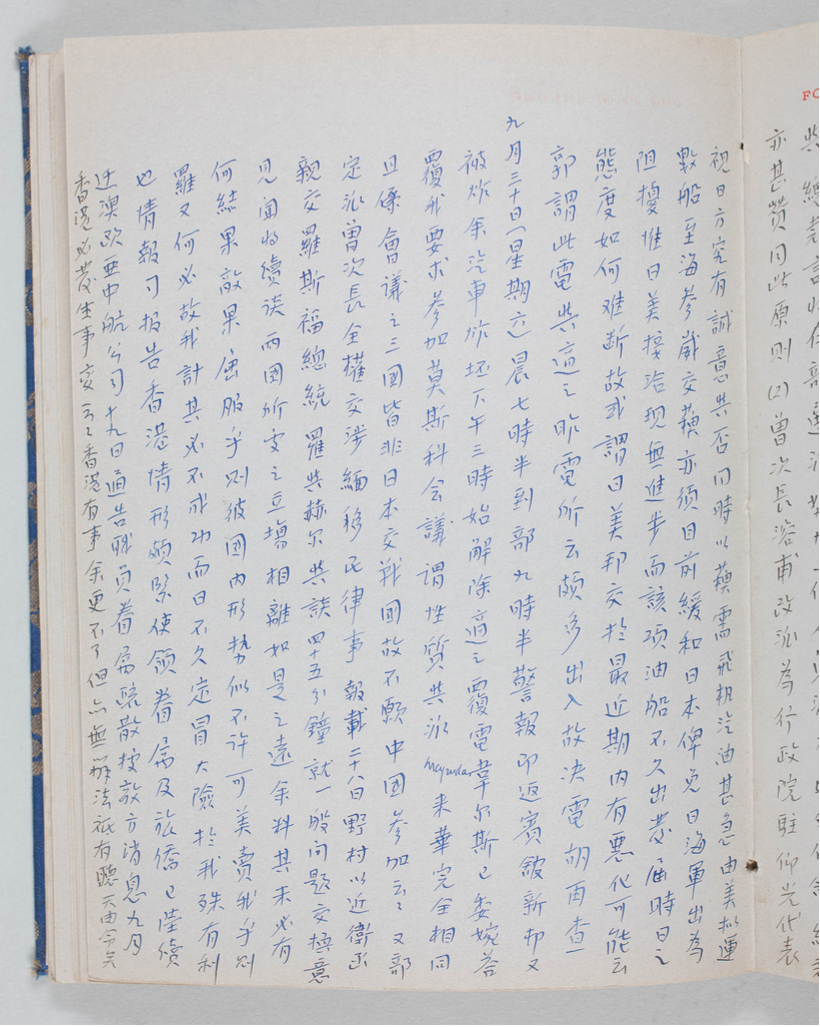 亦甚贊同此原則(2)曾次長溶甫改派為行政院駐仰光代表
視日方究有誠意與否同時以蘇需飛機汽油甚急由美拟運
數船至海參崴交蘇亦須目前緩和日本俾免日海軍出為
阻擾惟日美接洽現無進步而該項油船不久出發屆時日之
態度如何难断故或謂日美邦交於最近期內有惡化可能云
郭謂此電與適之昨電所云頗多出入故决電胡再查一
九月三十日(星期二)晨七時半到部九時半警報即返賓館新邨又
被炸余汽車炸坏下午三時始解除適之覆電韋尔斯已委婉答
覆我要求參加莫斯科会議謂性質與派 Magruder 來華完全相同
且係會議之三國皆非日本交戰國故不願中國參加云云又部
定派曾次長全權交涉緬移民律事報載二十八日野村以近衛函
親交羅斯福總統羅與赫尔共談四十五分鐘就一般问题交换意
見闻将續谈两國所处之立場相離如是之遠余料其未必有
何结果敵果屈服乎则彼國内形势似不许可美賣我乎则
羅又何必故我計其必不成功而日不久定冒大險於我殊有利
也情報司报告香港情形頗緊使領眷属及旅僑已陸續
迁澳欧亚中航公司十九日通告职員眷属疏散按敌方消息九月
香港必发生事变云云香港有事余更不了但亦無辦法祗有聽天由命矣